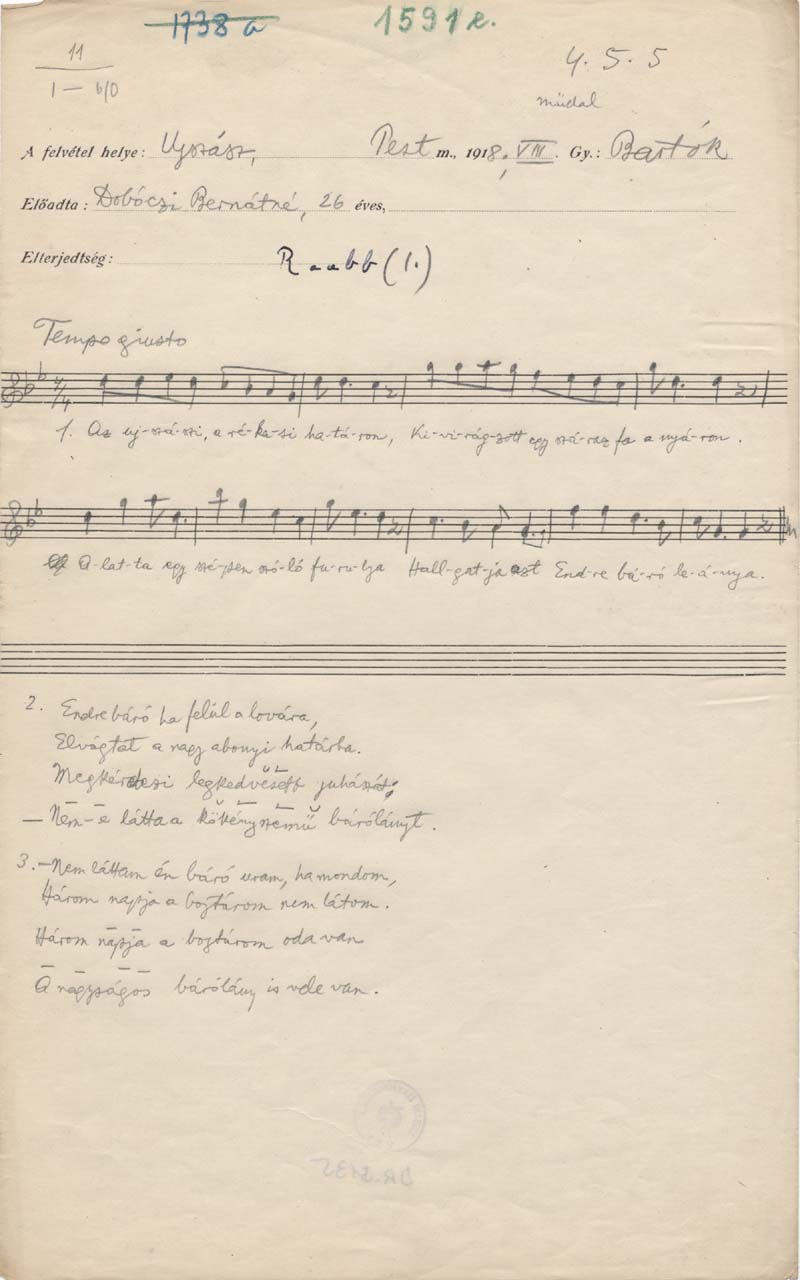 1738 a 1591 e.
11
I — b/0
4. 5. 5
műdal
A felvétel helye: Ujszász, Pest m., 1918, VIII. Gy.: Bartók
Előadta: Dobóczi Bernátné, 26 éves,
Elterjedtség: Raabb (1.)
Tempo giusto
1. Az uj-szá-szi, a ré-ka-si ha-tá-ron, Ki-vi-rág-zott egy szá-raz fa a nyá-ron.
A-lat-ta egy szé-pen szó-ló fu-ru-lya Hall-gat-ja azt End-re bá-ró le-á-nya.
2. Endre báró ha felül a lovára,
Elvágtat a nagy abonyi határba.
Megkérdezi legkedvesebb juhászát;
— Nem-e látta a kökényszemű bárólányt.
3. — Nem láttam én báró uram, ha mondom,
Három napja a bojtárom nem látom.
Három napja a bojtárom oda van
A nagyságos bárólány is vele van.